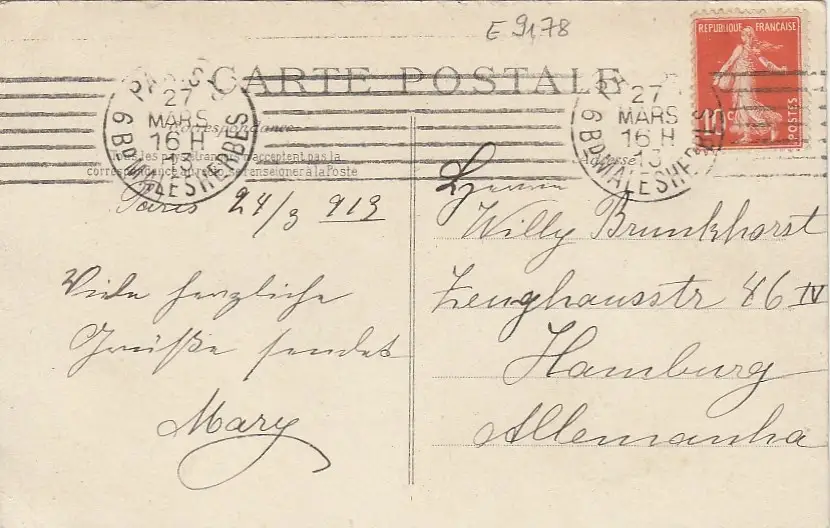 E 9178
CARTE POSTALE
REPUBLIQUE FRANÇAISE
10 c
POSTES
PARIS
27
MARS
16 H
13
6 Bd MALESHERBES
PARIS
27
MARS
16 H
13
6 Bd MALESHERBES
Correspondance
Tous les pays étrangers n'acceptent pas la
correspondance au recto, se renseigner à la Poste
Adresse
Paris 27/3 913
Viele herzliche
Grüße sendet
Mary
Herrn
Willy Brunkhorst
Zeughausstr 46 IV
Hamburg
Allemanha